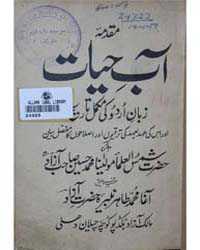 مقدمہ
آب حیات
زبان اردو کی مکمل تاریخ
اور اس کی عہد بعہد کی ترقیوں اور اصلاحوں کا مفصل بیان
حضرت شمس العلما مولینا محمد حسین صاحب آزاد
آغا محمد طاہر نبیرہ حضرت آزاد
مالک آزاد بکڈپو کوچہ چیلان دہلی